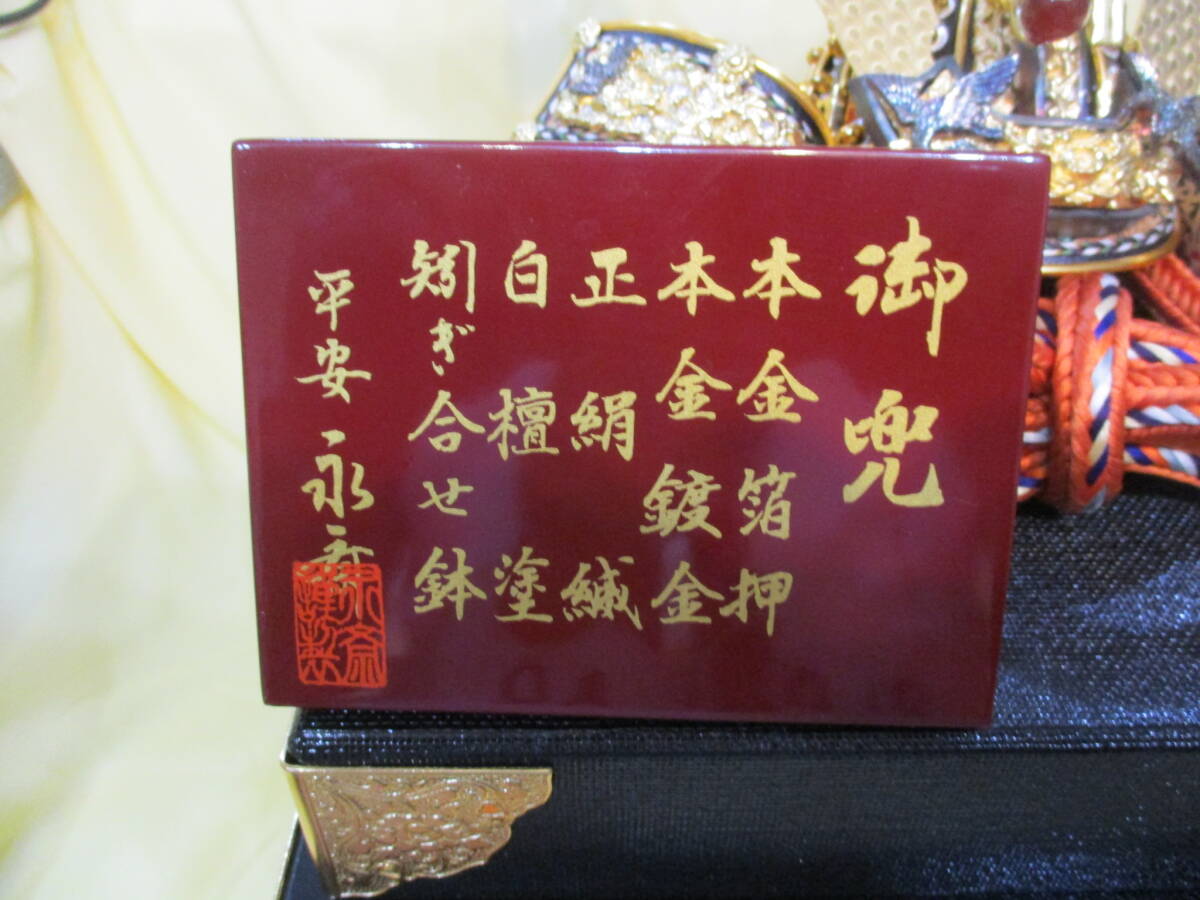 御兜
本金箔押
本金鍍金
正絹縅
白檀塗
矧ぎ合せ鉢
平安 永斎
永斎謹製